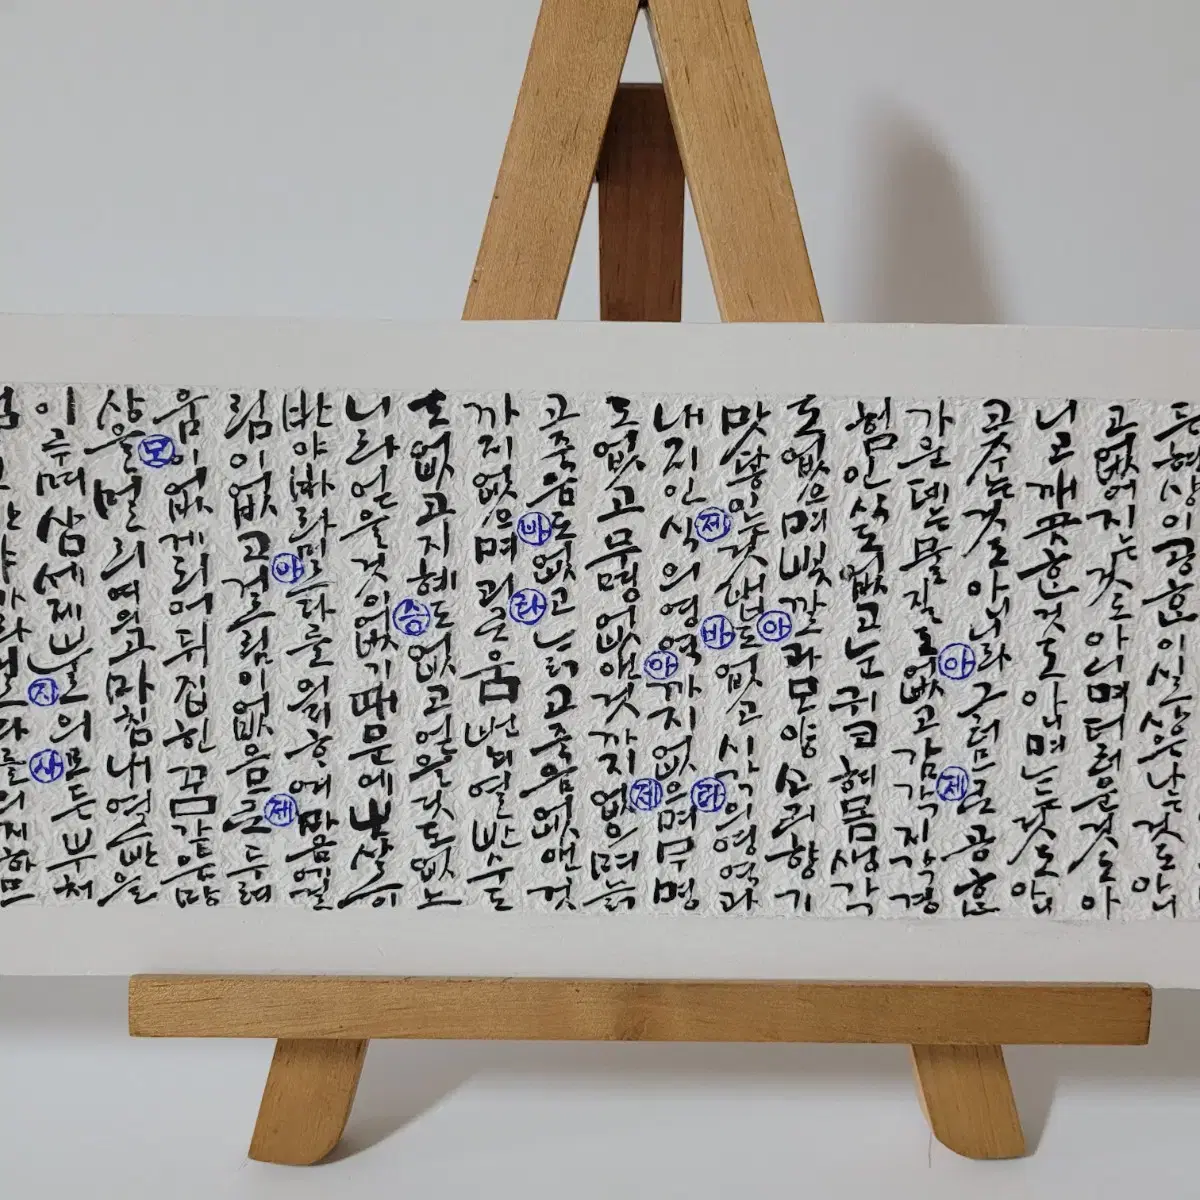 든현상이공한이실상은나는것도아니
고없어지는것도아니며더러운것도아
니고깨끗한것도아니며는것도아니
고주는것도아니라그러므로공한
가운데는물질도없고감각지각경
험인식도없고눈귀코혀몸생각
도없으며빛깔과모양소리향기
맛닿이는것도없고시각의영역과
내지인식의영역까지없으며무명
도없고무명없앤것까지없으며늙
고죽음도없고늙고죽음없앤것
까지없으며괴로움번뇌열반수도
도없고지혜도없고얻을것도없느
니라얻을것이없기때문에보살이
반야바라밀다를의지하여마음에걸
림이없고걸림이없으므로두려
움이없게되어뒤집힌꿈같은망
상을멀리여의고마침내열반을
이루며삼세제불의모든부처
반야바라밀다를의지하므
아
제
아
제
바
라
아
제
바
라
승
아
제
모
지
사